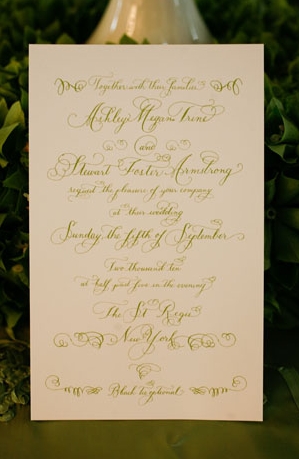 Together with their families
Ashley Megan Trine
and
Stewart Foster Armstrong
request the pleasure of your company
at their wedding
Sunday, the fifth of September
Two thousand ten
at half past five in the evening
The St Regis
New York
Black tie optional